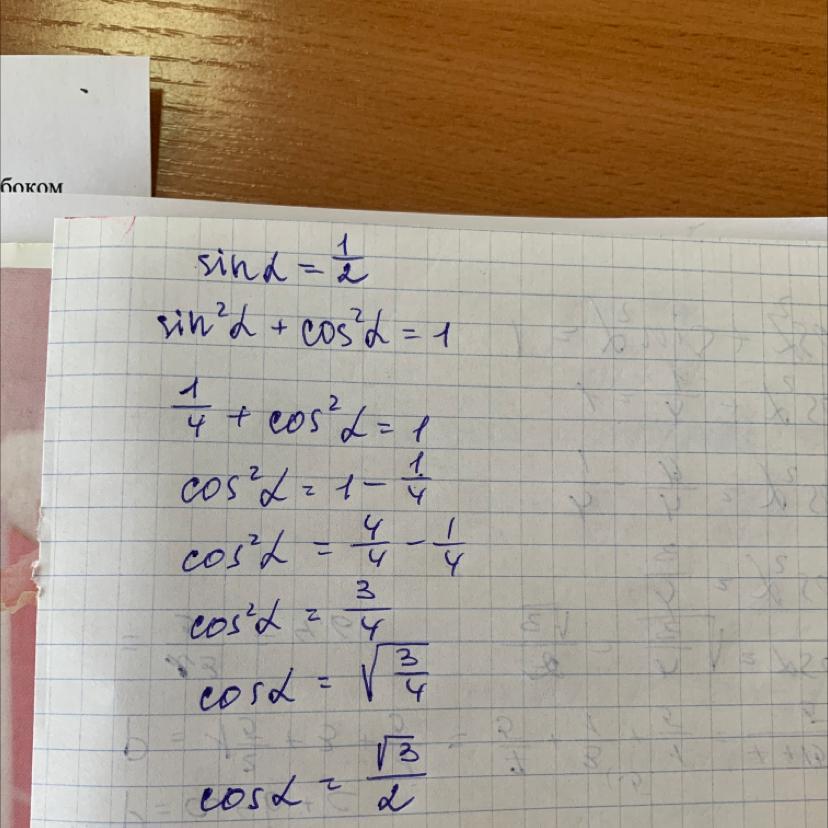 боком
sin α = 1/2
sin²α + cos²α = 1
1/4 + cos²α = 1
cos²α = 1 - 1/4
cos²α = 4/4 - 1/4
cos²α = 3/4
cos α = √(3/4)
cos α = √3/2